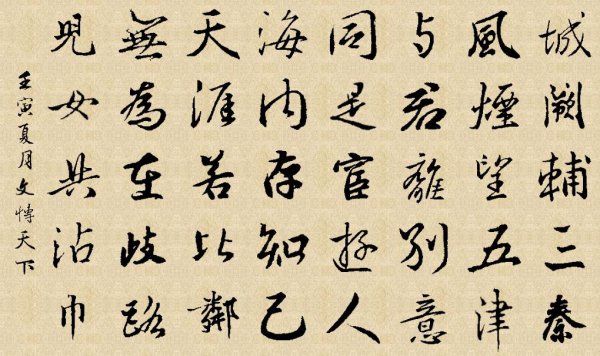 城闕輔三秦
風煙望五津
与君離別意
同是宦遊人
海内存知己
天涯若比鄰
無為在歧路
兒女共沾巾
壬寅夏月文愽天下